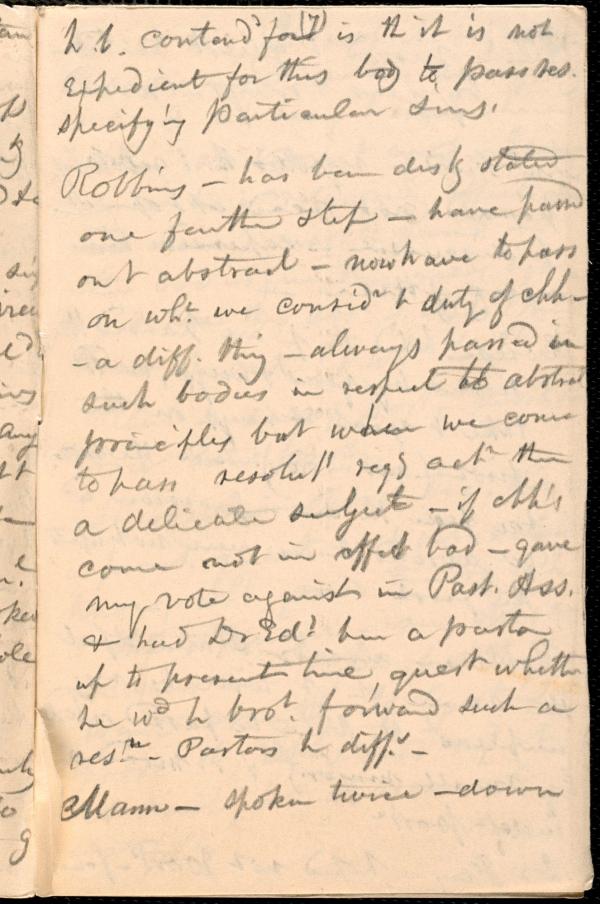 h. b. contend^d for is th it is not
(7)
expedient for this body to pass res.
specify'g Particular sins.
Robbins – has been dist^g stated
one further step – have passed
out abstract – now have to pass
on wh^t. we consid^r h duty of chh –
– a diff. thing – always passed in
such bodies in respect to abstract
principles but when we come
to pass resolut^ns reg^g act^n then
a delicate subject – if chh's
come not in effect bad – gave
my vote against in Past. Ass.
& had Dr Ed^s been a pastor
up to present time, quest whether
he w^d h brot. forward such a
res^n. – Pastors h diff^y –
Mann – spoken twice – down